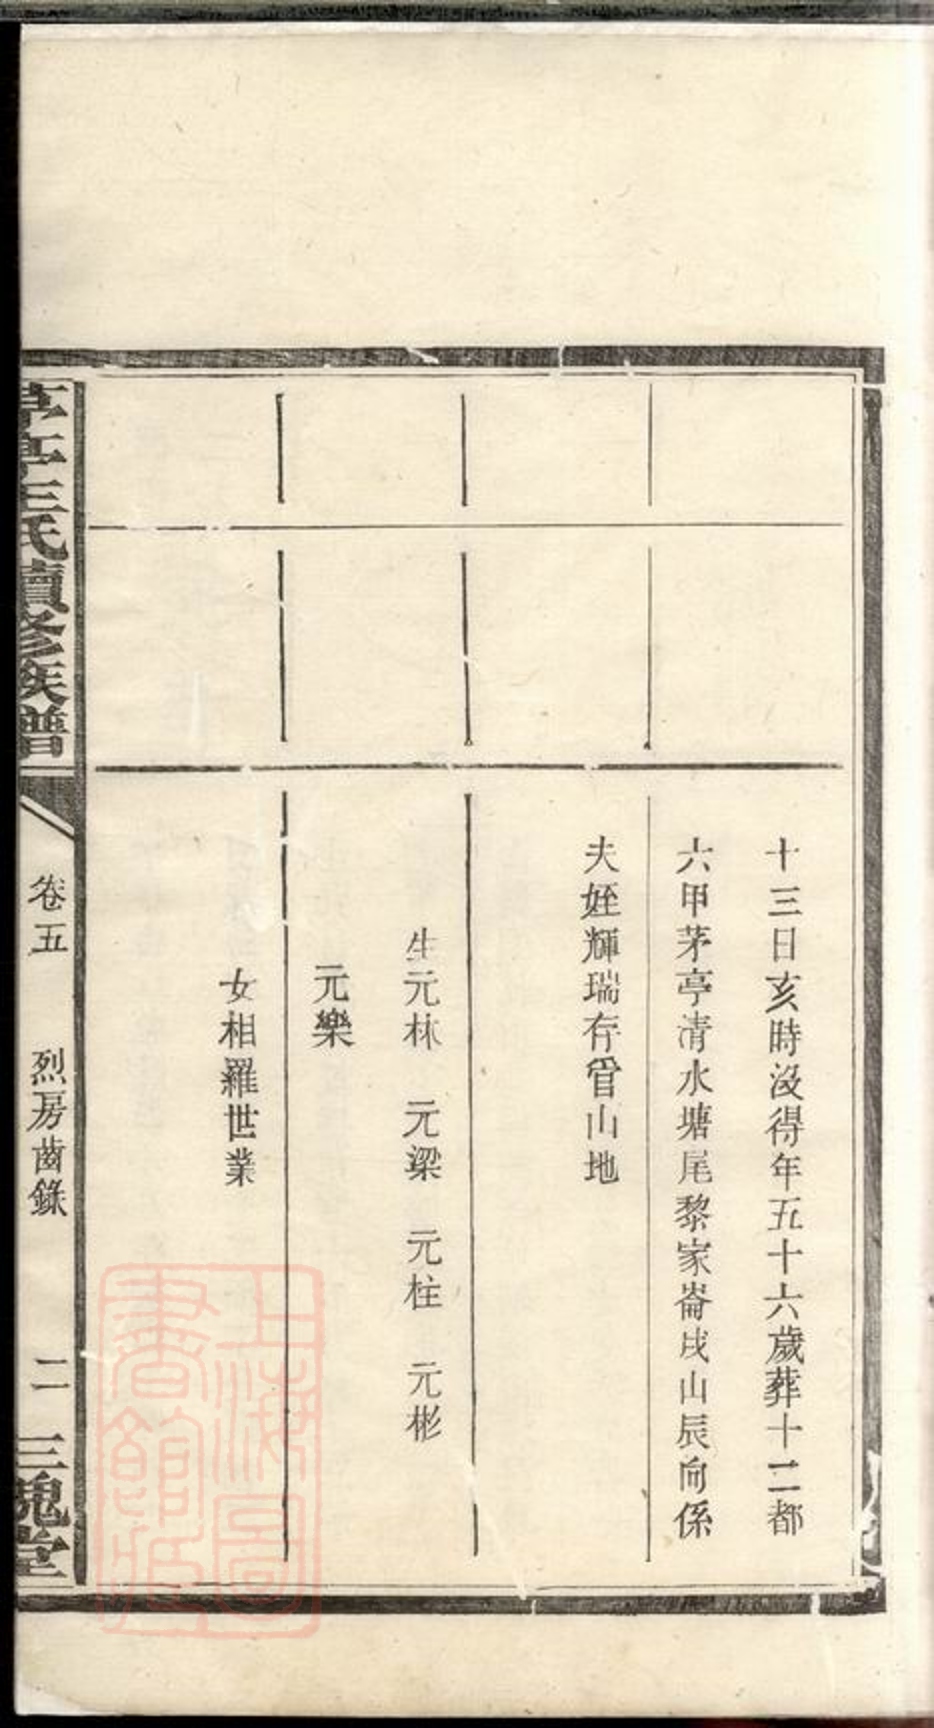 十三日亥時沒得年五十六歲葬十二都
六甲茅亭清水塘尾黎家崙戌山辰向係
夫姪輝瑞存管山地
生元林 元梁 元柱 元彬
元樂
女相羅世業
茅亭王氏續修族譜
卷五 烈房齒錄 二 三槐堂
上海圖書館藏